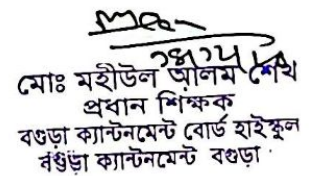 মোঃ মহীউল আলম শেখ
প্রধান শিক্ষক
বগুড়া ক্যান্টনমেন্ট বোর্ড হাইস্কুল
বগুড়া ক্যান্টনমেন্ট বগুড়া